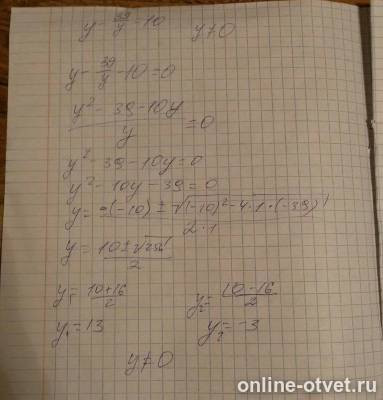 y - 39/y = 10 y ≠ 0
y - 39/y - 10 = 0
(y² - 39 - 10y)/y = 0
y² - 39 - 10y = 0
y² - 10y - 39 = 0
y = -(-10) ± √((-10)² - 4·1·(-39)) / 2·1
y = (10 ± √256)/2
y₁ = (10+16)/2 y₂ = (10-16)/2
y₁ = 13 y₂ = -3
y ≠ 0
online-otvet.ru